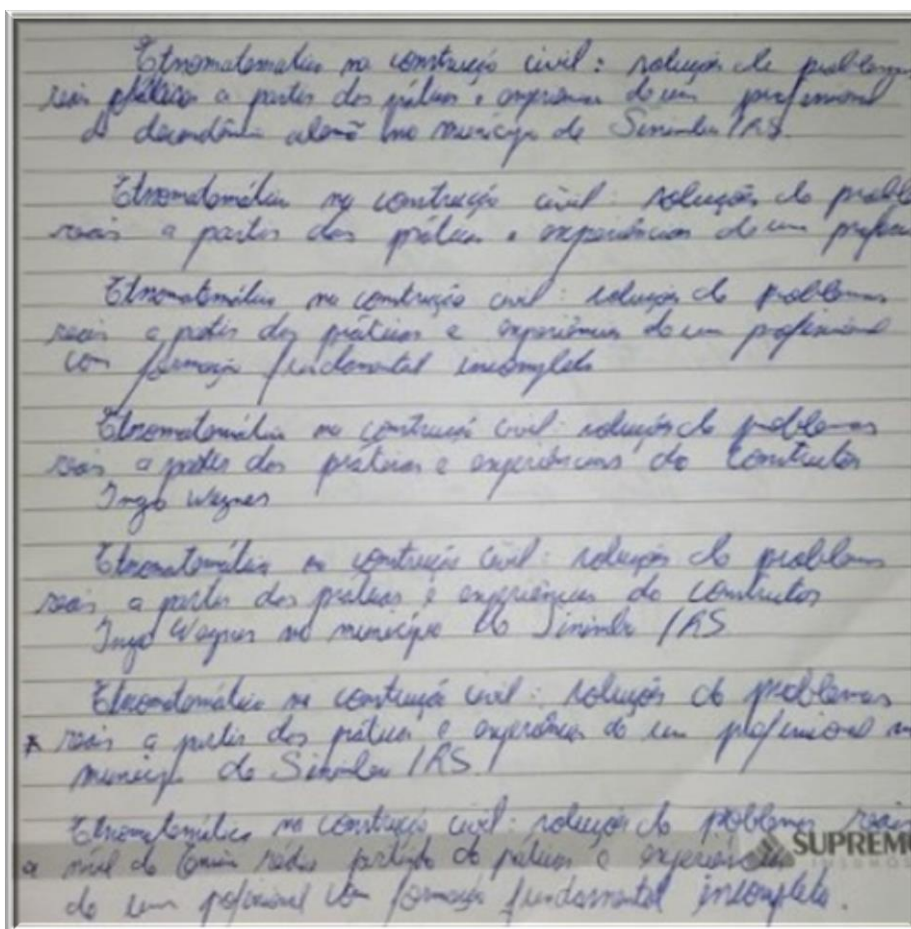 Etnomatematica na construção civil: soluções de problemas
reais a partir das práticas e experiencia de um profissional
de descendência alemã no município de Sinimbu/RS.
Etnomatemática na construção civil: soluções de probl
reais a partir das práticas e experiências de um profissi
Etnomatemática na construção civil: soluções de problemas
reais a partir das práticas e experiências de um profissional
com formação fundamental incompleta
Etnomatemática na construção civil: soluções de problemas
reais a partir das práticas e experiências do construtor
Ingo Wagner
Etnomatemática na construção civil: soluções de problemas
reais a partir das práticas e experiências do construtor
Ingo Wagner no município de Sinimbu/RS
Etnomatemática na construção civil: soluções de problemas
* reais a partir das práticas e experiências de um profissional n
município de Sinimbu/RS.
Etnomatemática na construção civil: soluções de problemas reais
a nível de Ensino Médio partindo de práticas e experiências
de um profissional com formação fundamental incompleta.
SUPREMO
INSUMOS